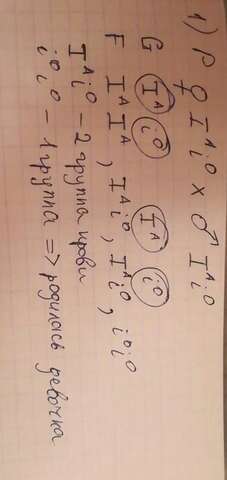 1) P ♀ Iᴬi⁰ x ♂ Iᴬi⁰
G Iᴬ i⁰ Iᴬ i⁰
F IᴬIᴬ, Iᴬi⁰, Iᴬi⁰, i⁰i⁰
Iᴬi⁰ - 2 группа крови
i⁰i⁰ - 1 группа => родилась девочка